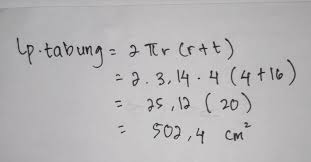 Lp.tabung = 2 πr (r+t)
= 2.3,14.4 (4+16)
= 25,12 (20)
= 502,4 cm²